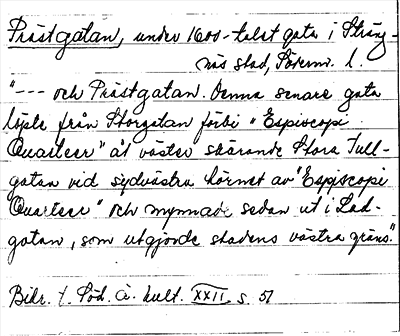 Prästgatan, under 1600-talet gata i Sträng-
näs stad, Söderm. l.
"--- och Prästgatan. Denna senare gata
löpte från Storgatan förbi "Espiscopi
Quarteer" åt väster skärande Stora Tull-
gatan vid sydvästra hörnet av "Espiscopi
Quarteer" och mynnade sedan ut i Lad-
gatan, som utgjorde stadens västra gräns."
Bidr. t. Söd. ä. kult. XXII s. 51